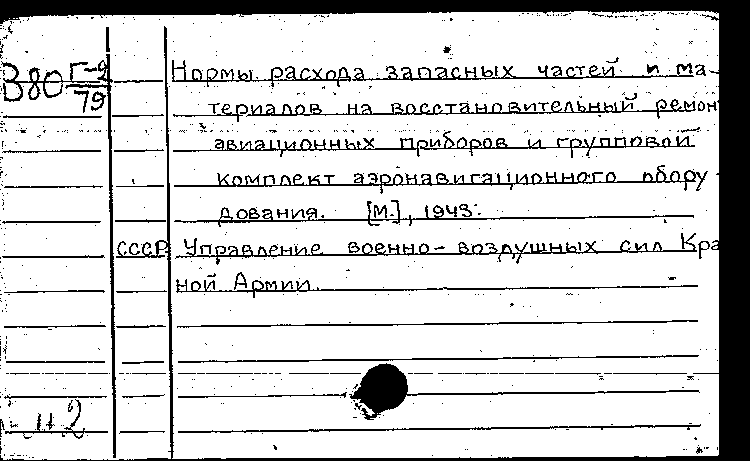 В80 Г-2/79
Нормы расхода запасных частей и ма-
териалов на восстановительный ремонт
авиационных приборов и групповой
комплект аэронавигационного обору-
дования. [М.], 1943.
СССР Управление военно-воздушных сил Кра
ной Армии.